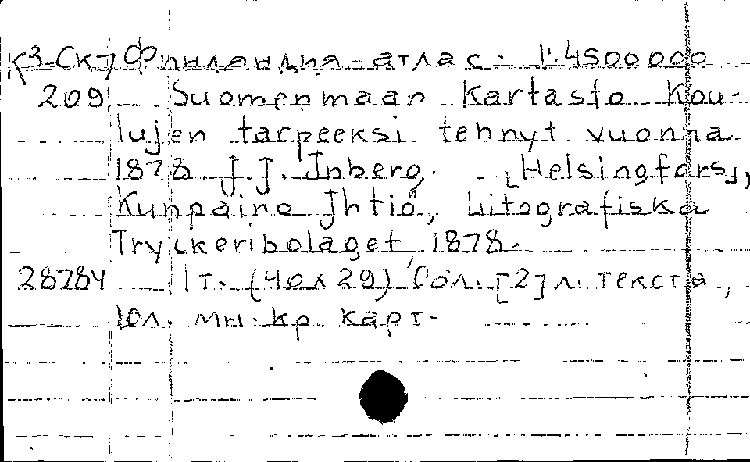 К3-Ск7 Финляндия - атлас. 1:4500000
209 Suomenmaan Kartasto Kou-
lujen tarpeeksi tehnyt vuonna
1878 J.J. Jnberg. [Helsingfors],
Kunpaino Jhtiö, Litografiska
Tryckeribolaget, 1878.
28784 1т. (40х29) Обл. [2] л. текста,
10л. мн. кр. карт.